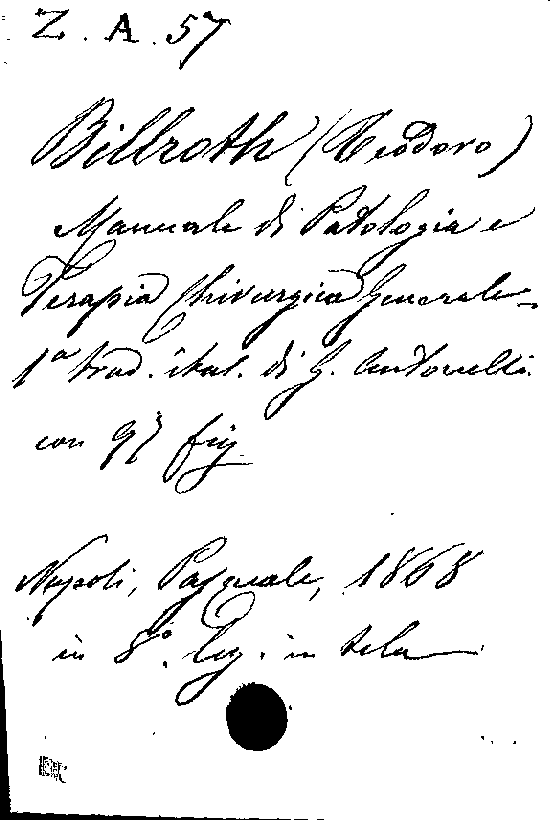 Z. A. 57
Billroth (Teodoro)
Manuale di Patologia e
Terapia Chirurgica Generale -
1a trad. ital. di G. Antonelli.
con 97 fig
Napoli, Pasquale, 1868
in 8°. Leg. in tela